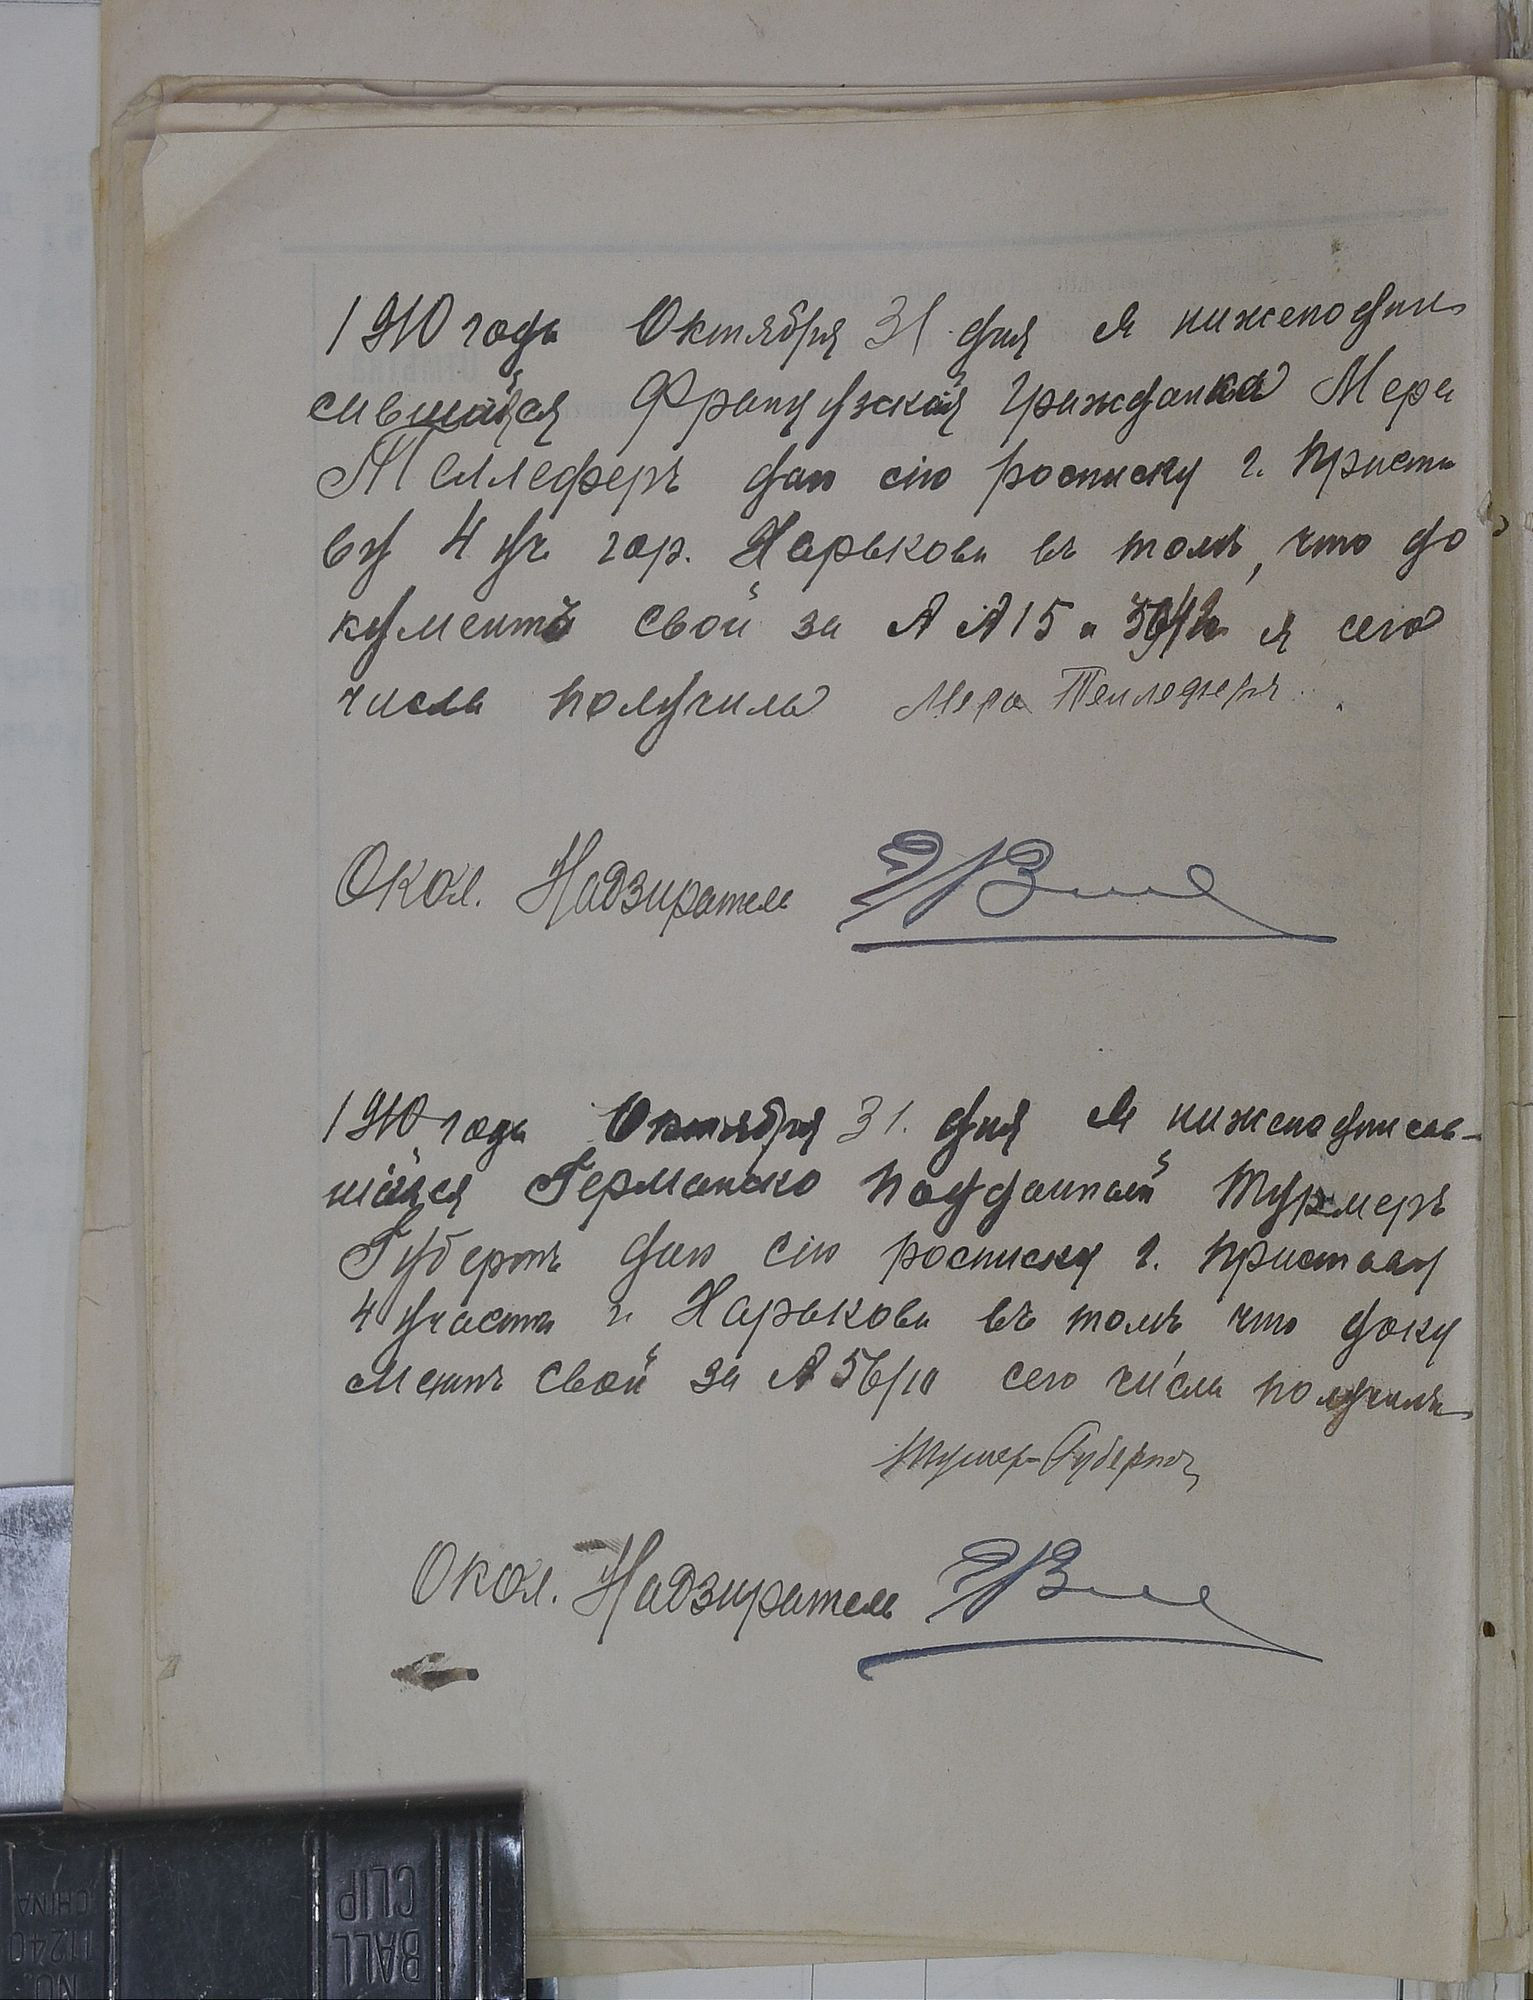 1910 года Октября 31 дня Я нижеподпи
савшаяся Французская Гражданка Мера
Теллеферъ даю сію росписку г. Приста
ву 4 уч гор. Харькова въ томъ, что до
кументъ свой за № № 15 и я сего
числа получила Мера Теллеферъ.
Окол. Надзиратель
1910 года Октября 31. дня Я нижеподписав-
шійся Германско Подданный Турмеръ
Губертъ даю сію росписку г. Приставу
4 участка г. Харькова въ томъ что доку
ментъ свой за № 56/10 сего числа получилъ
Турмер-Губертъ
Окол. Надзиратель
BALL
CLIP
NO.
11240
CHINA